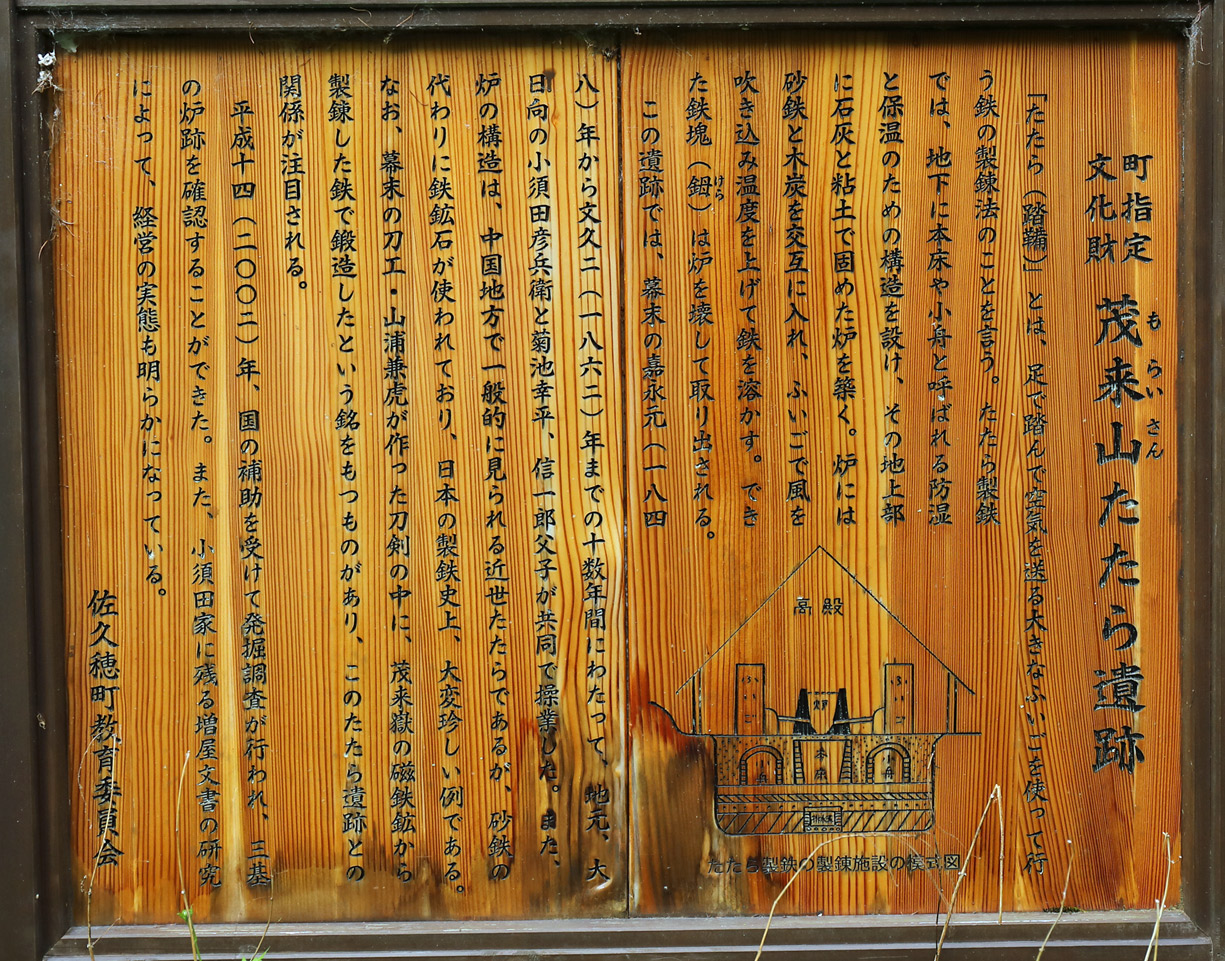 町指定
文化財
茂来山たたら遺跡
もらいさん
「たたら（踏鞴）」とは、足で踏んで空気を送る大きなふいごを使って行
う鉄の製錬法のことを言う。たたら製鉄
では、地下に本床や小舟と呼ばれる防湿
と保温のための構造を設け、その地上部
に石灰と粘土で固めた炉を築く。炉には
砂鉄と木炭を交互に入れ、ふいごで風を
吹き込み温度を上げて鉄を溶かす。でき
た鉄塊（鉧）は炉を壊して取り出される。
けら
この遺跡では、幕末の嘉永元（一八四
八）年から文久二（一八六二）年までの十数年間にわたって、地元、大
日向の小須田彦兵衛と菊池幸平、信一郎父子が共同で操業した。また、
炉の構造は、中国地方で一般的に見られる近世たたらであるが、砂鉄の
代わりに鉄鉱石が使われており、日本の製鉄史上、大変珍しい例である。
なお、幕末の刀工・山浦兼虎が作った刀剣の中に、茂来嶽の磁鉄鉱から
製錬した鉄で鍛造したという銘をもつものがあり、このたたら遺跡との
関係が注目される。
平成十四（二〇〇二）年、国の補助を受けて発掘調査が行われ、三基
の炉跡を確認することができた。また、小須田家に残る増屋文書の研究
によって、経営の実態も明らかになっている。
佐久穂町教育委員会
高殿
ふいご
炉
ふいご
小舟
本床
小舟
たたら製鉄の製錬施設の模式図